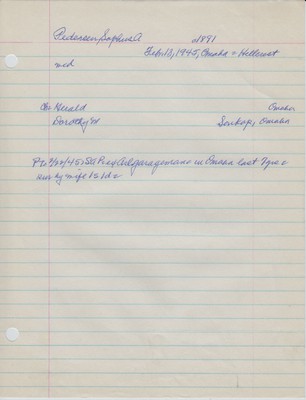 Pedersen, Sophus A      a1891
Feb. 13, 1945, Omaha = Hillcrest
md
Ch: Herald      Omaha
Dorothy M      Omaha
PD 2/22/45; SA
in Omaha last 7 yrs =
surv by wife 1s 1d =